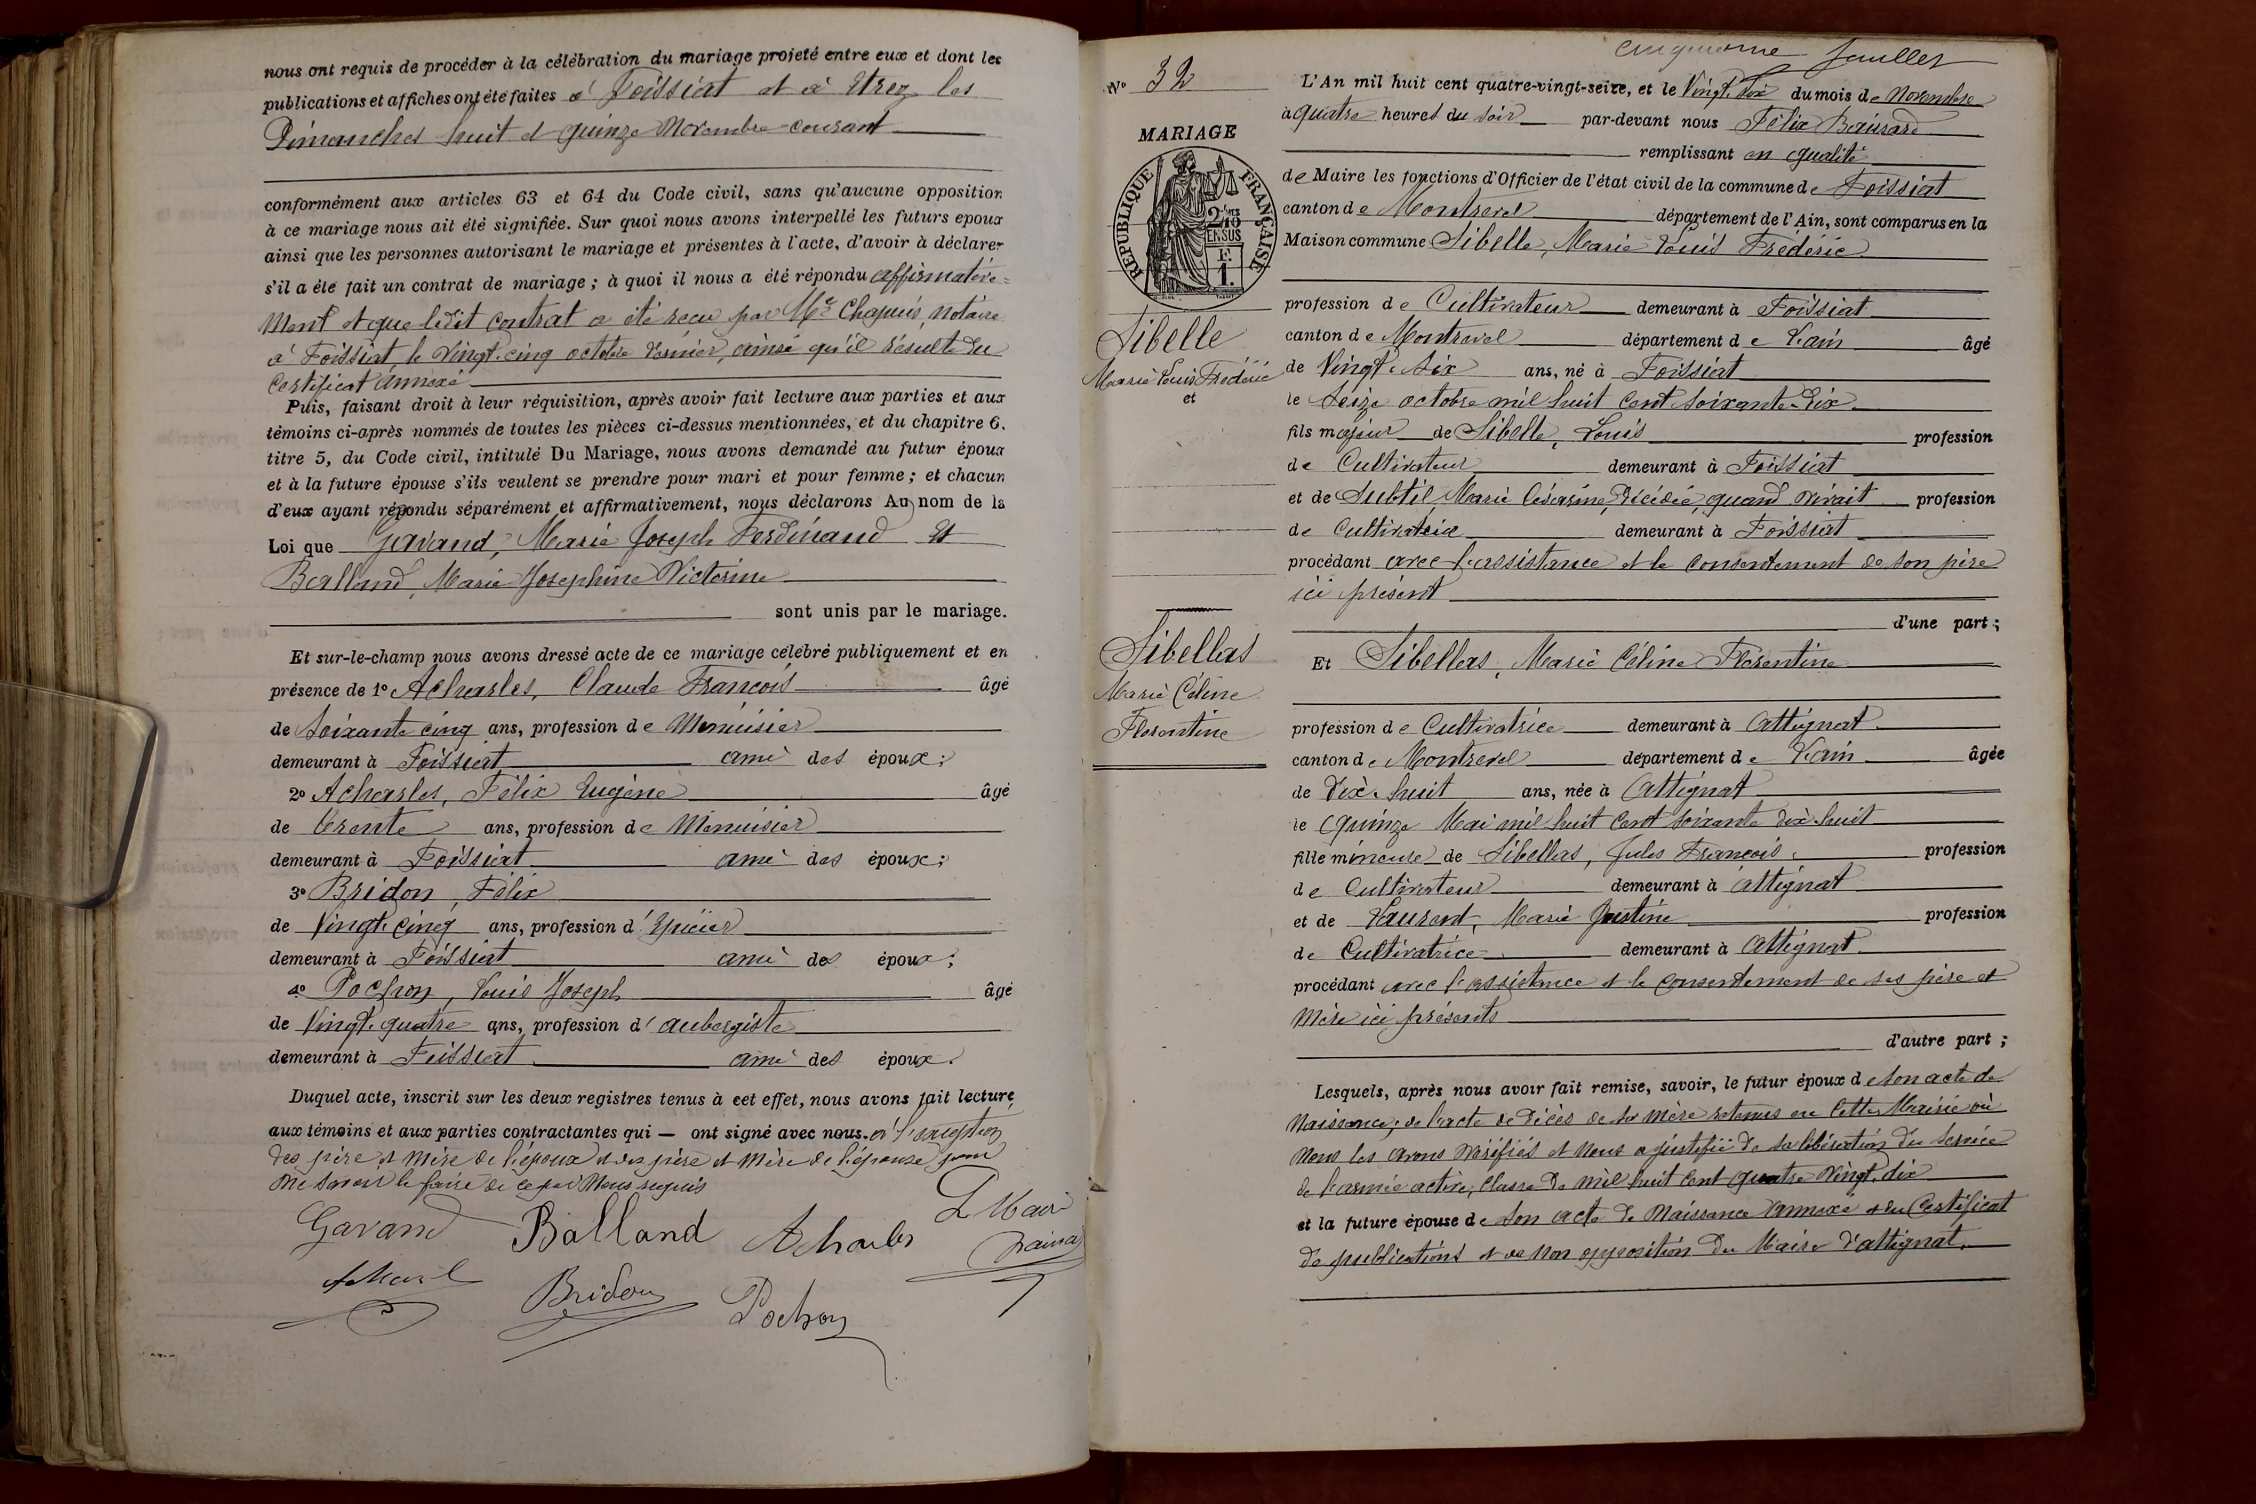 nous ont requis de procéder à la célébration du mariage projeté entre eux et dont les
publications et affiches ont été faites à Foissiat et à Etrez les
Dimanches huit et quinze Novembre courant
conformément aux articles 63 et 64 du Code civil, sans qu'aucune opposition
à ce mariage nous ait été signifiée. Sur quoi nous avons interpellé les futurs epoux
ainsi que les personnes autorisant le mariage et présentes à l'acte, d'avoir à déclarer
s'il a été fait un contrat de mariage ; à quoi il nous a été répondu affirmative=
ment et que ledit contrat a été reçu par Me Chapuis, notaire
à Foissiat, le vingt-cinq octobre dernier, ainsi qu'il résulte du
Certificat annexé
Puis, faisant droit à leur réquisition, après avoir fait lecture aux parties et aux
témoins ci-après nommés de toutes les pièces ci-dessus mentionnées, et du chapitre 6,
titre 5, du Code civil, intitulé Du Mariage, nous avons demandé au futur époux
et à la future épouse s'ils veulent se prendre pour mari et pour femme ; et chacun
d'eux ayant répondu séparément et affirmativement, nous déclarons Au nom de la
Loi que Gavand, Marie Joseph Ferdinand Et
Balland, Marie Josephine Victorine
sont unis par le mariage.
Et sur-le-champ nous avons dressé acte de ce mariage célébré publiquement et en
présence de 1º Acharles, Claude François âgé
de Soixante cinq ans, profession de Menuisier
demeurant à Foissiat ami des époux ;
2º Acharles, Félix Eugène âgé
de trente ans, profession de Menuisier
demeurant à Foissiat ami des époux ;
3º Bridon, Félix
de Vingt-cinq ans, profession d'épicier
demeurant à Foissiat ami des époux ;
4º Pochon, Louis Joseph âgé
de Vingt-quatre ans, profession d'aubergiste
demeurant à Foissiat ami des époux.
Duquel acte, inscrit sur les deux registres tenus à cet effet, nous avons fait lecture
aux témoins et aux parties contractantes qui — ont signé avec nous. à l'exception
des père et mère de l'époux et des père et mère de l'épouse pour
ne savoir le faire de ce par nous requis
Gavand Balland Acharles Le Maire
Bridon Pochon
cinquième feuillet
No 32
MARIAGE
RÉPUBLIQUE FRANÇAISE
2/10 EN SUS
F. 1.
Sibelle
Marie Louis Frédéric
et
Sibellas
Marie Céline
Florentine
L'An mil huit cent quatre-vingt-seize, et le Vingt-six du mois de Novembre
à quatre heures du soir par-devant nous Félix
remplissant en qualité
de Maire les fonctions d'Officier de l'état civil de la commune de Foissiat
canton de Montrevel département de l'Ain, sont comparus en la
Maison commune Sibelle, Marie Louis Frédéric
profession de Cultivateur demeurant à Foissiat
canton de Montrevel département de l'ain âgé
de Vingt-six ans, né à Foissiat
le Seize octobre mil huit cent soixante-dix
fils majeur de Sibelle, Louis profession
de Cultivateur demeurant à Foissiat
et de Subtil, Marie Césarine, décédée, quand vivait profession
de Cultivatrice demeurant à Foissiat
procédant avec l'assistance et le consentement de son père
ici présent
d'une part ;
Et Sibellas, Marie Céline Florentine
profession de Cultivatrice demeurant à Attignat
canton de Montrevel département de l'ain âgée
de Dix-huit ans, née à Attignat
le quinze Mai mil huit cent soixante dix huit
fille mineure de Sibellas, Jules François profession
de Cultivateur demeurant à Attignat
et de Laurent, Marie Justine profession
de Cultivatrice demeurant à Attignat
procédant avec l'assistance et le consentement de ses père et
mère ici présents
d'autre part ;
Lesquels, après nous avoir fait remise, savoir, le futur époux de son acte de
naissance, de l'acte de décès de sa mère retenus en cette Mairie où
nous les avons vérifiés et nous a justifié de sa libération du service
de l'armée active, classe de mil huit cent quatre vingt dix
et la future épouse de son acte de naissance annexé et du Certificat
de publications et de non opposition du Maire d'attignat.